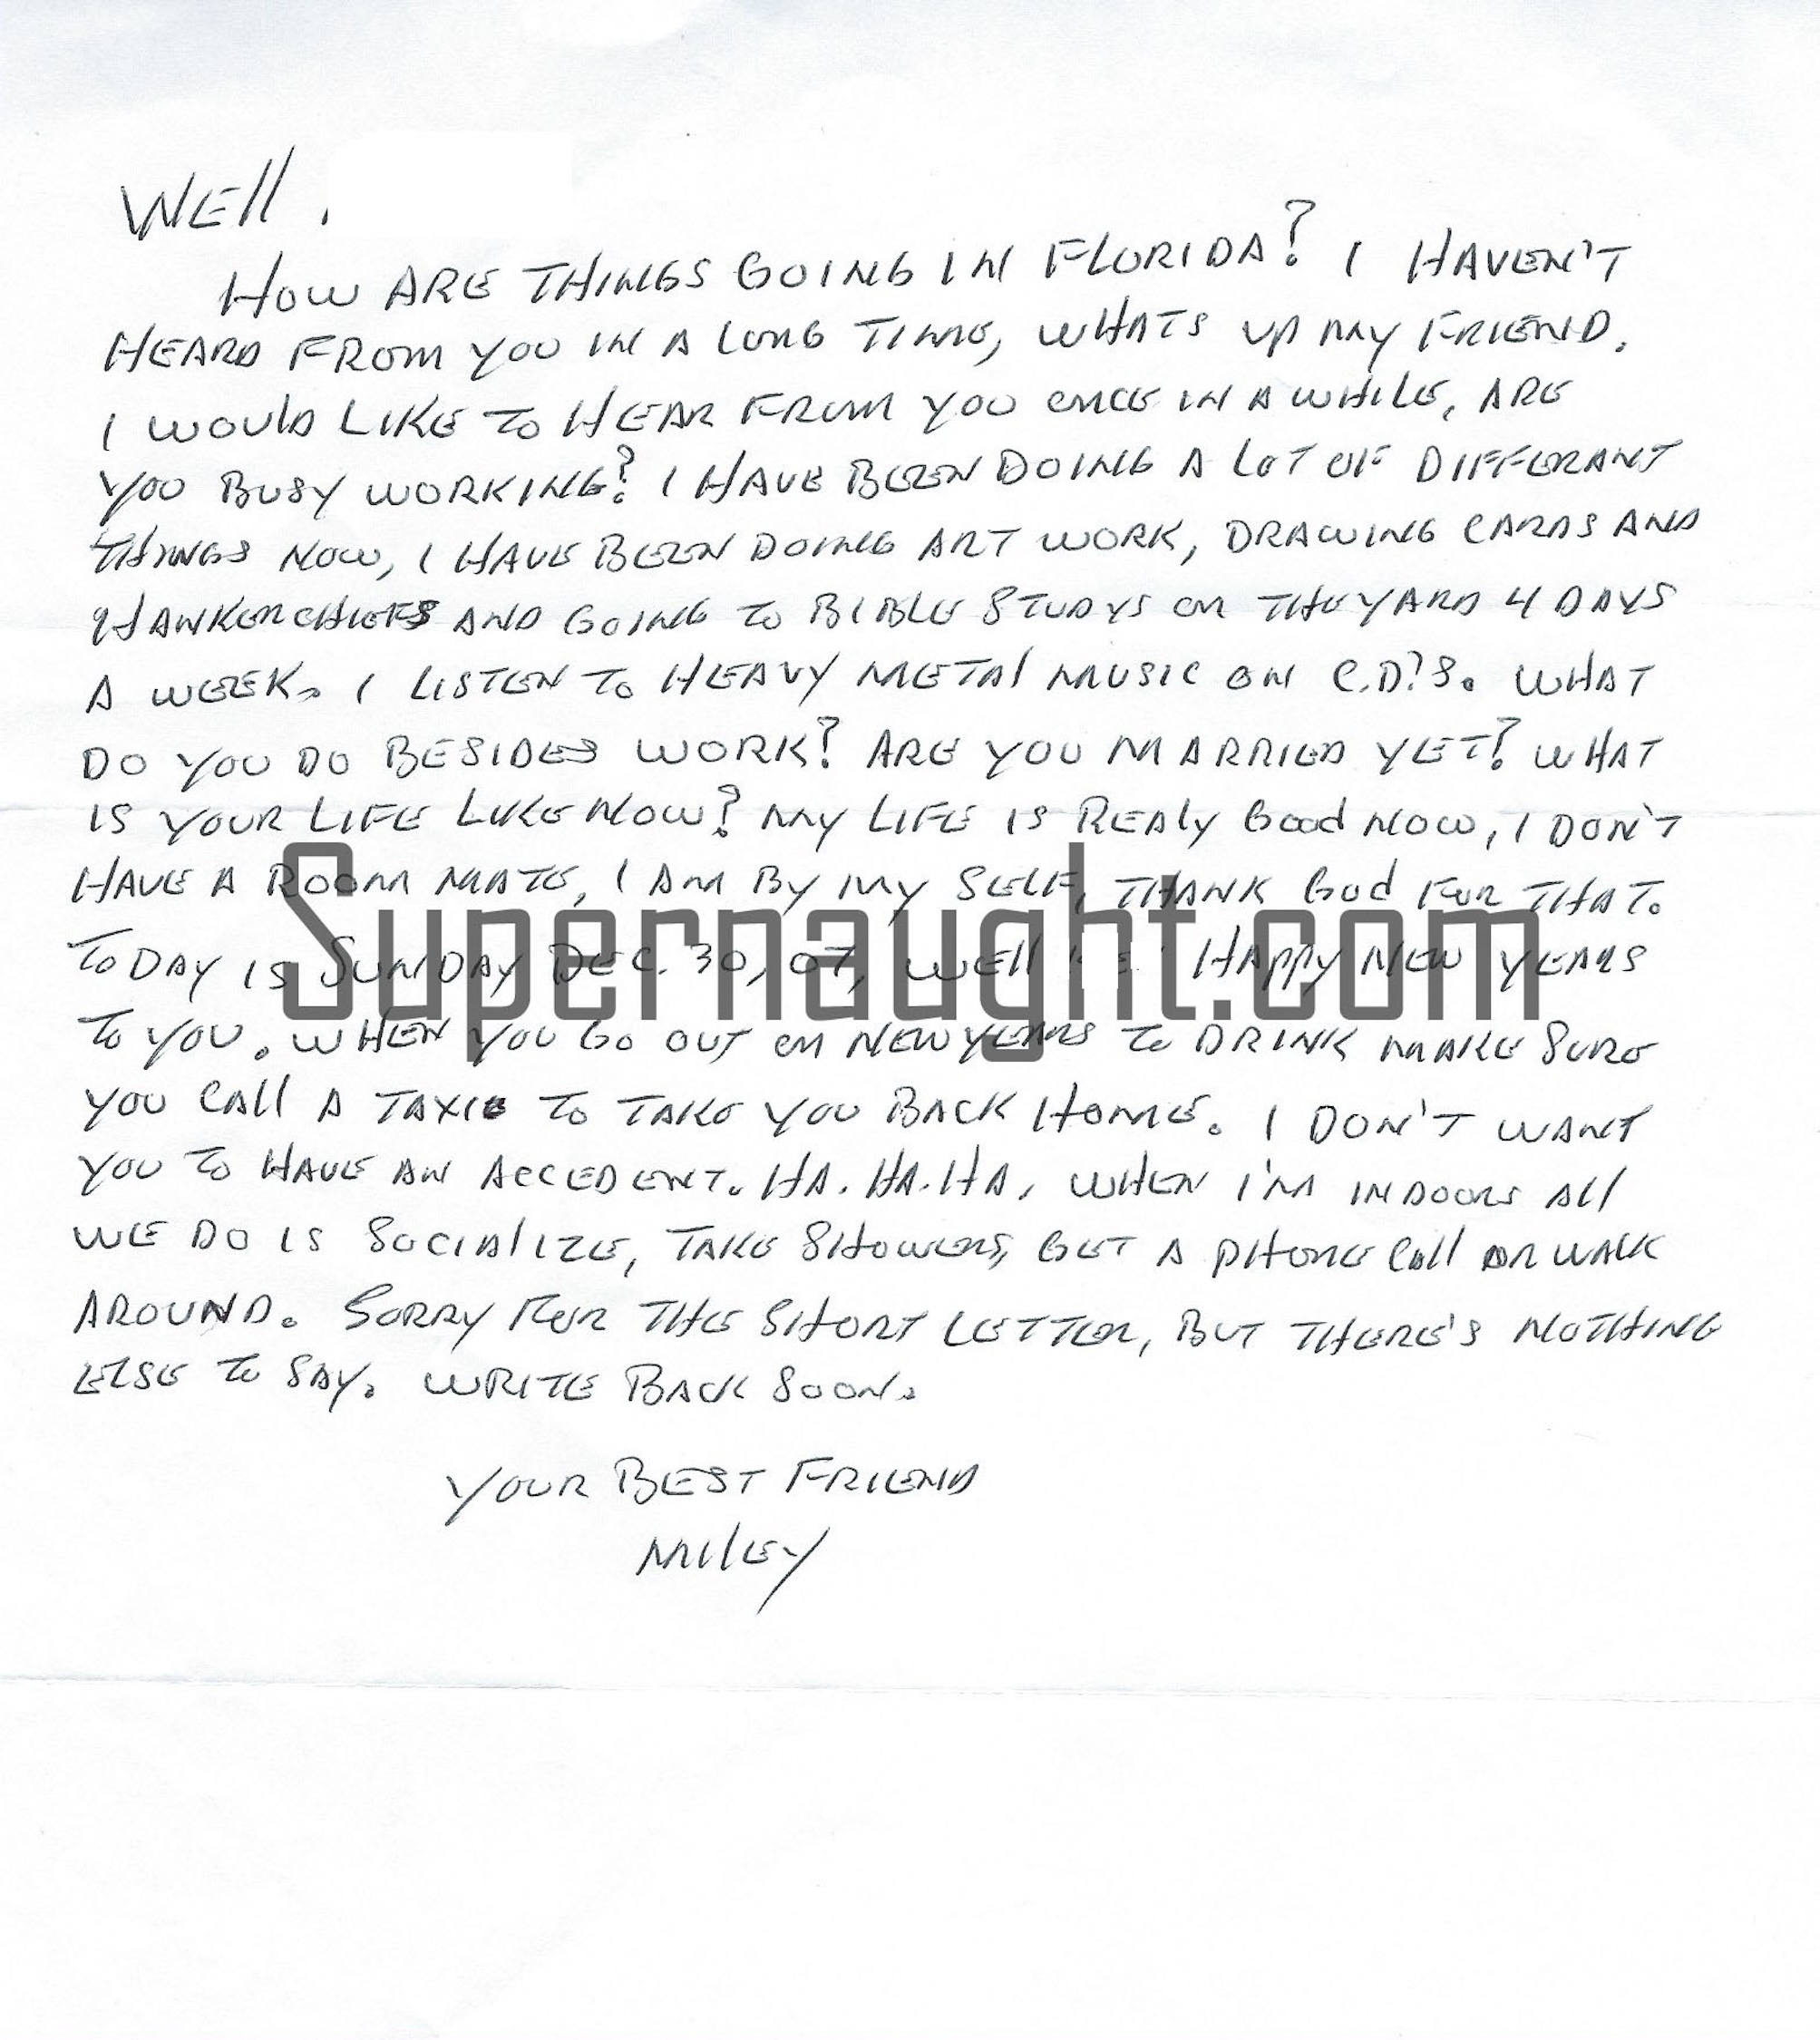 WEll ,
HOW ARE THINGS GOING IN FLORIDA? I HAVEN'T
HEARD FROM YOU IN A LONG TIME, WHATS UP MY FRIEND.
I WOULD LIKE TO HEAR FROM YOU ONCE IN A WHILE, ARE
YOU BUSY WORKING? I HAVE BEEN DOING A LOT OF DIFFERANT
THINGS NOW, I HAVE BEEN DOING ART WORK, DRAWING CARDS AND
HAWKERCHIEFS AND GOING TO BIBLE STUDYS ON THE YARD 4 DAYS
A WEEK. I LISTEN TO HEAVY METAl MUSIC ON C.D.'S. WHAT
DO YOU DO BESIDES WORK? ARE YOU MARRIED YET? WHAT
IS YOUR LIFE LIKE NOW? MY LIFE IS REAly Good NOW, I DON'T
HAVE A ROOM MATE, I AM BY MY SELF, THANK God FOR THAT.
TODAY IS SUNDAY DEC. 30, 07, WEll HAPPY NEW YEARS
Supernaught.com
TO YOU. WHEN YOU GO OUT ON NEW YEARS TO DRINK MAKE SURE
YOU CAll A TAXIE TO TAKE YOU BACK HOME. I DON'T WANT
YOU TO HAVE AN ACCEDENT. HA. HA. HA, WHEN I'M INDOORS All
WE DO IS SOCIAlIZE, TAKE SHOWERS, GET A PHONE CAll OR WALK
AROUND. SORRY FOR THE SHORT LETTER, BUT THERE'S NOTHING
ELSE TO SAY. WRITE BACK SOON.
YOUR BEST FRIEND
MIlEY